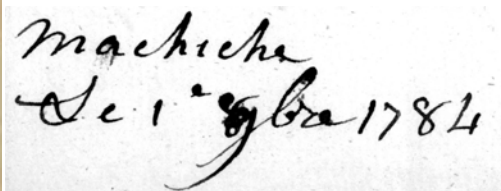 Machiche
Le 1e 9bre 1784